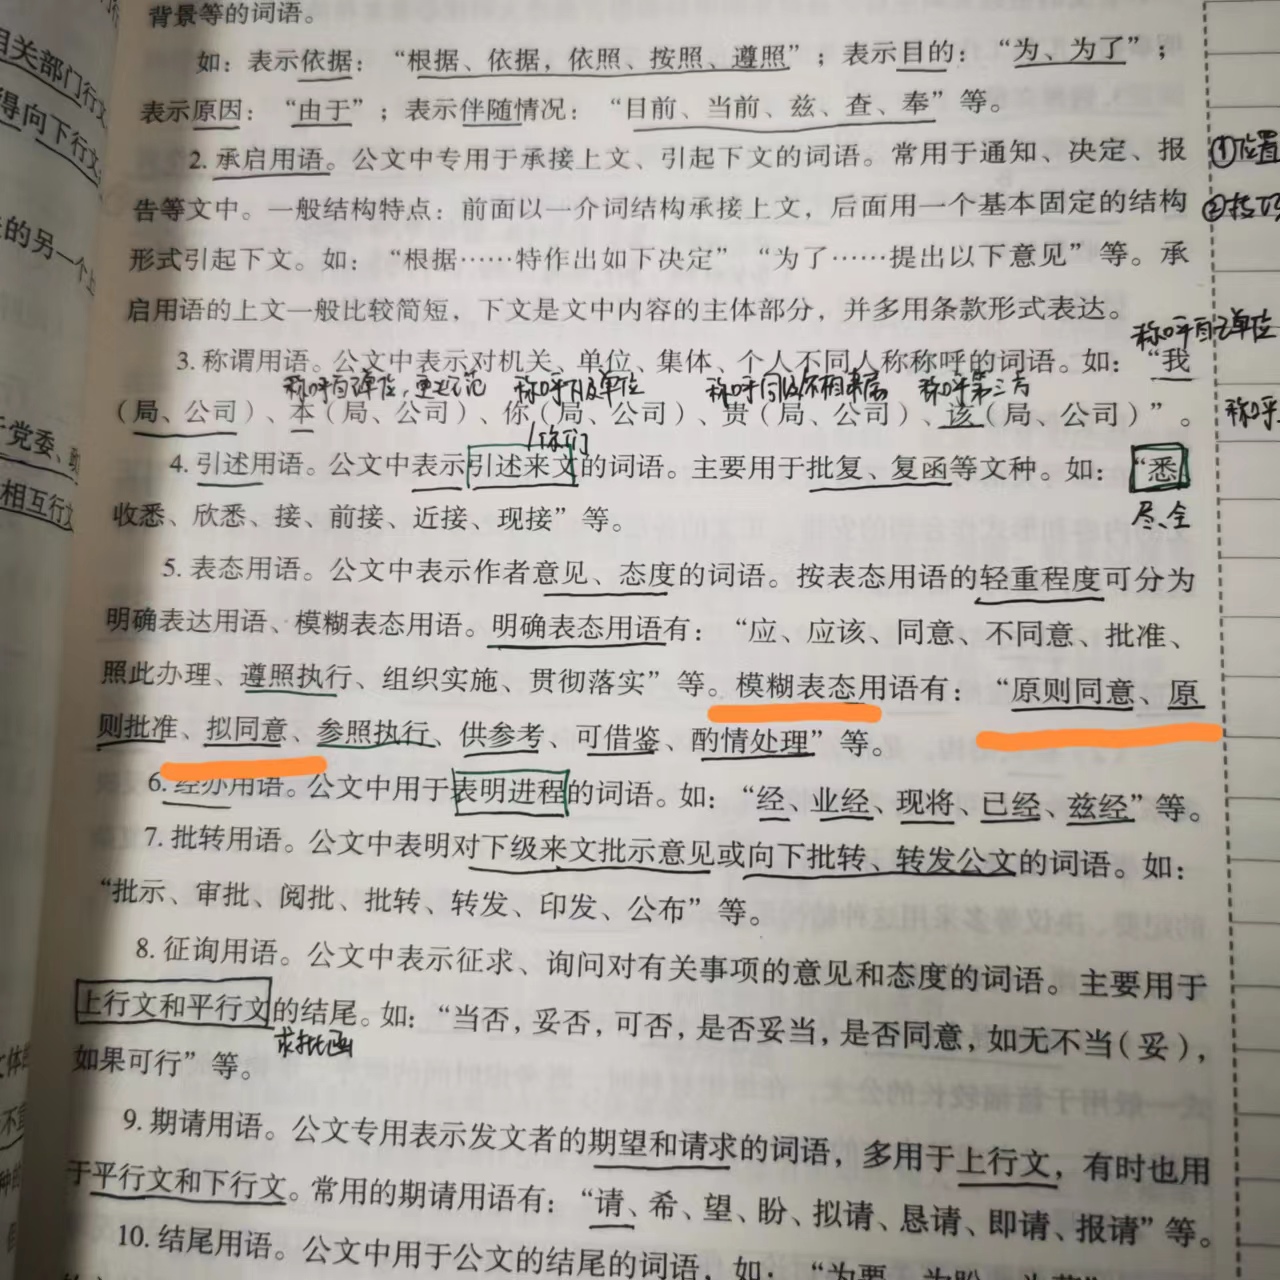 背景等的词语。
如：表示依据：“根据、依据，依照、按照、遵照”；表示目的：“为、为了”；
表示原因：“由于”；表示伴随情况：“目前、当前、兹、查、奉”等。
2. 承启用语。公文中专用于承接上文、引起下文的词语。常用于通知、决定、报
告等文中。一般结构特点：前面以一介词结构承接上文，后面用一个基本固定的结构
形式引起下文。如：“根据……特作出如下决定”“为了……提出以下意见”等。承
启用语的上文一般比较简短，下文是文中内容的主体部分，并多用条款形式表达。
称呼自己单位
3. 称谓用语。公文中表示对机关、单位、集体、个人不同人称称呼的词语。如：“我
称呼下级单位
称呼第三方
（局、公司）、本（局、公司）、你（局、公司）、贵（局、公司）、该（局、公司）”。
你们
4. 引述用语。公文中表示引述来文的词语。主要用于批复、复函等文种。如：“悉、
收悉、欣悉、接、前接、近接、现接”等。
尽、全
5. 表态用语。公文中表示作者意见、态度的词语。按表态用语的轻重程度可分为
明确表达用语、模糊表态用语。明确表态用语有：“应、应该、同意、不同意、批准、
照此办理、遵照执行、组织实施、贯彻落实”等。模糊表态用语有：“原则同意、原
则批准、拟同意、参照执行、供参考、可借鉴、酌情处理”等。
6. 经办用语。公文中用于表明进程的词语。如：“经、业经、现将、已经、兹经”等。
7. 批转用语。公文中表明对下级来文批示意见或向下批转、转发公文的词语。如：
“批示、审批、阅批、批转、转发、印发、公布”等。
8. 征询用语。公文中表示征求、询问对有关事项的意见和态度的词语。主要用于
上行文和平行文的结尾。如：“当否，妥否，可否，是否妥当，是否同意，如无不当（妥），
求批函
如果可行”等。
9. 期请用语。公文专用表示发文者的期望和请求的词语，多用于上行文，有时也用
于平行文和下行文。常用的期请用语有：“请、希、望、盼、拟请、恳请、即请、报请”等。
10. 结尾用语。公文中用于公文的结尾的词语，如：“为要
相关部门行文
得向下行文
的另一个上
党委、政
相互行文
①位置